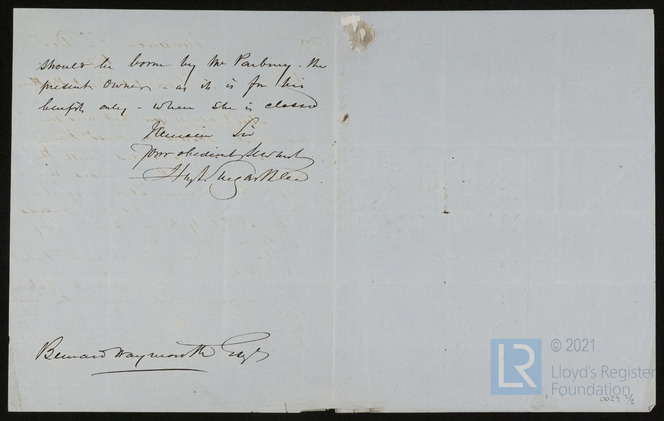 should be borne by Mr Parbury - the
present owner - as it is for his
benefit only - when she is classed
I remain Sir
your obedient Servant
Bernard Waymouth Esqr
LR
© 2021
Lloyd's Register
Foundation